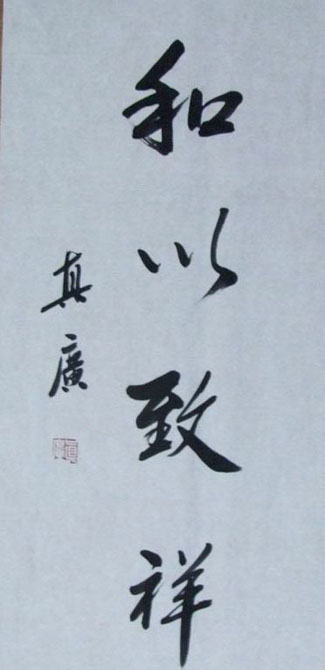 和以致祥
真廣